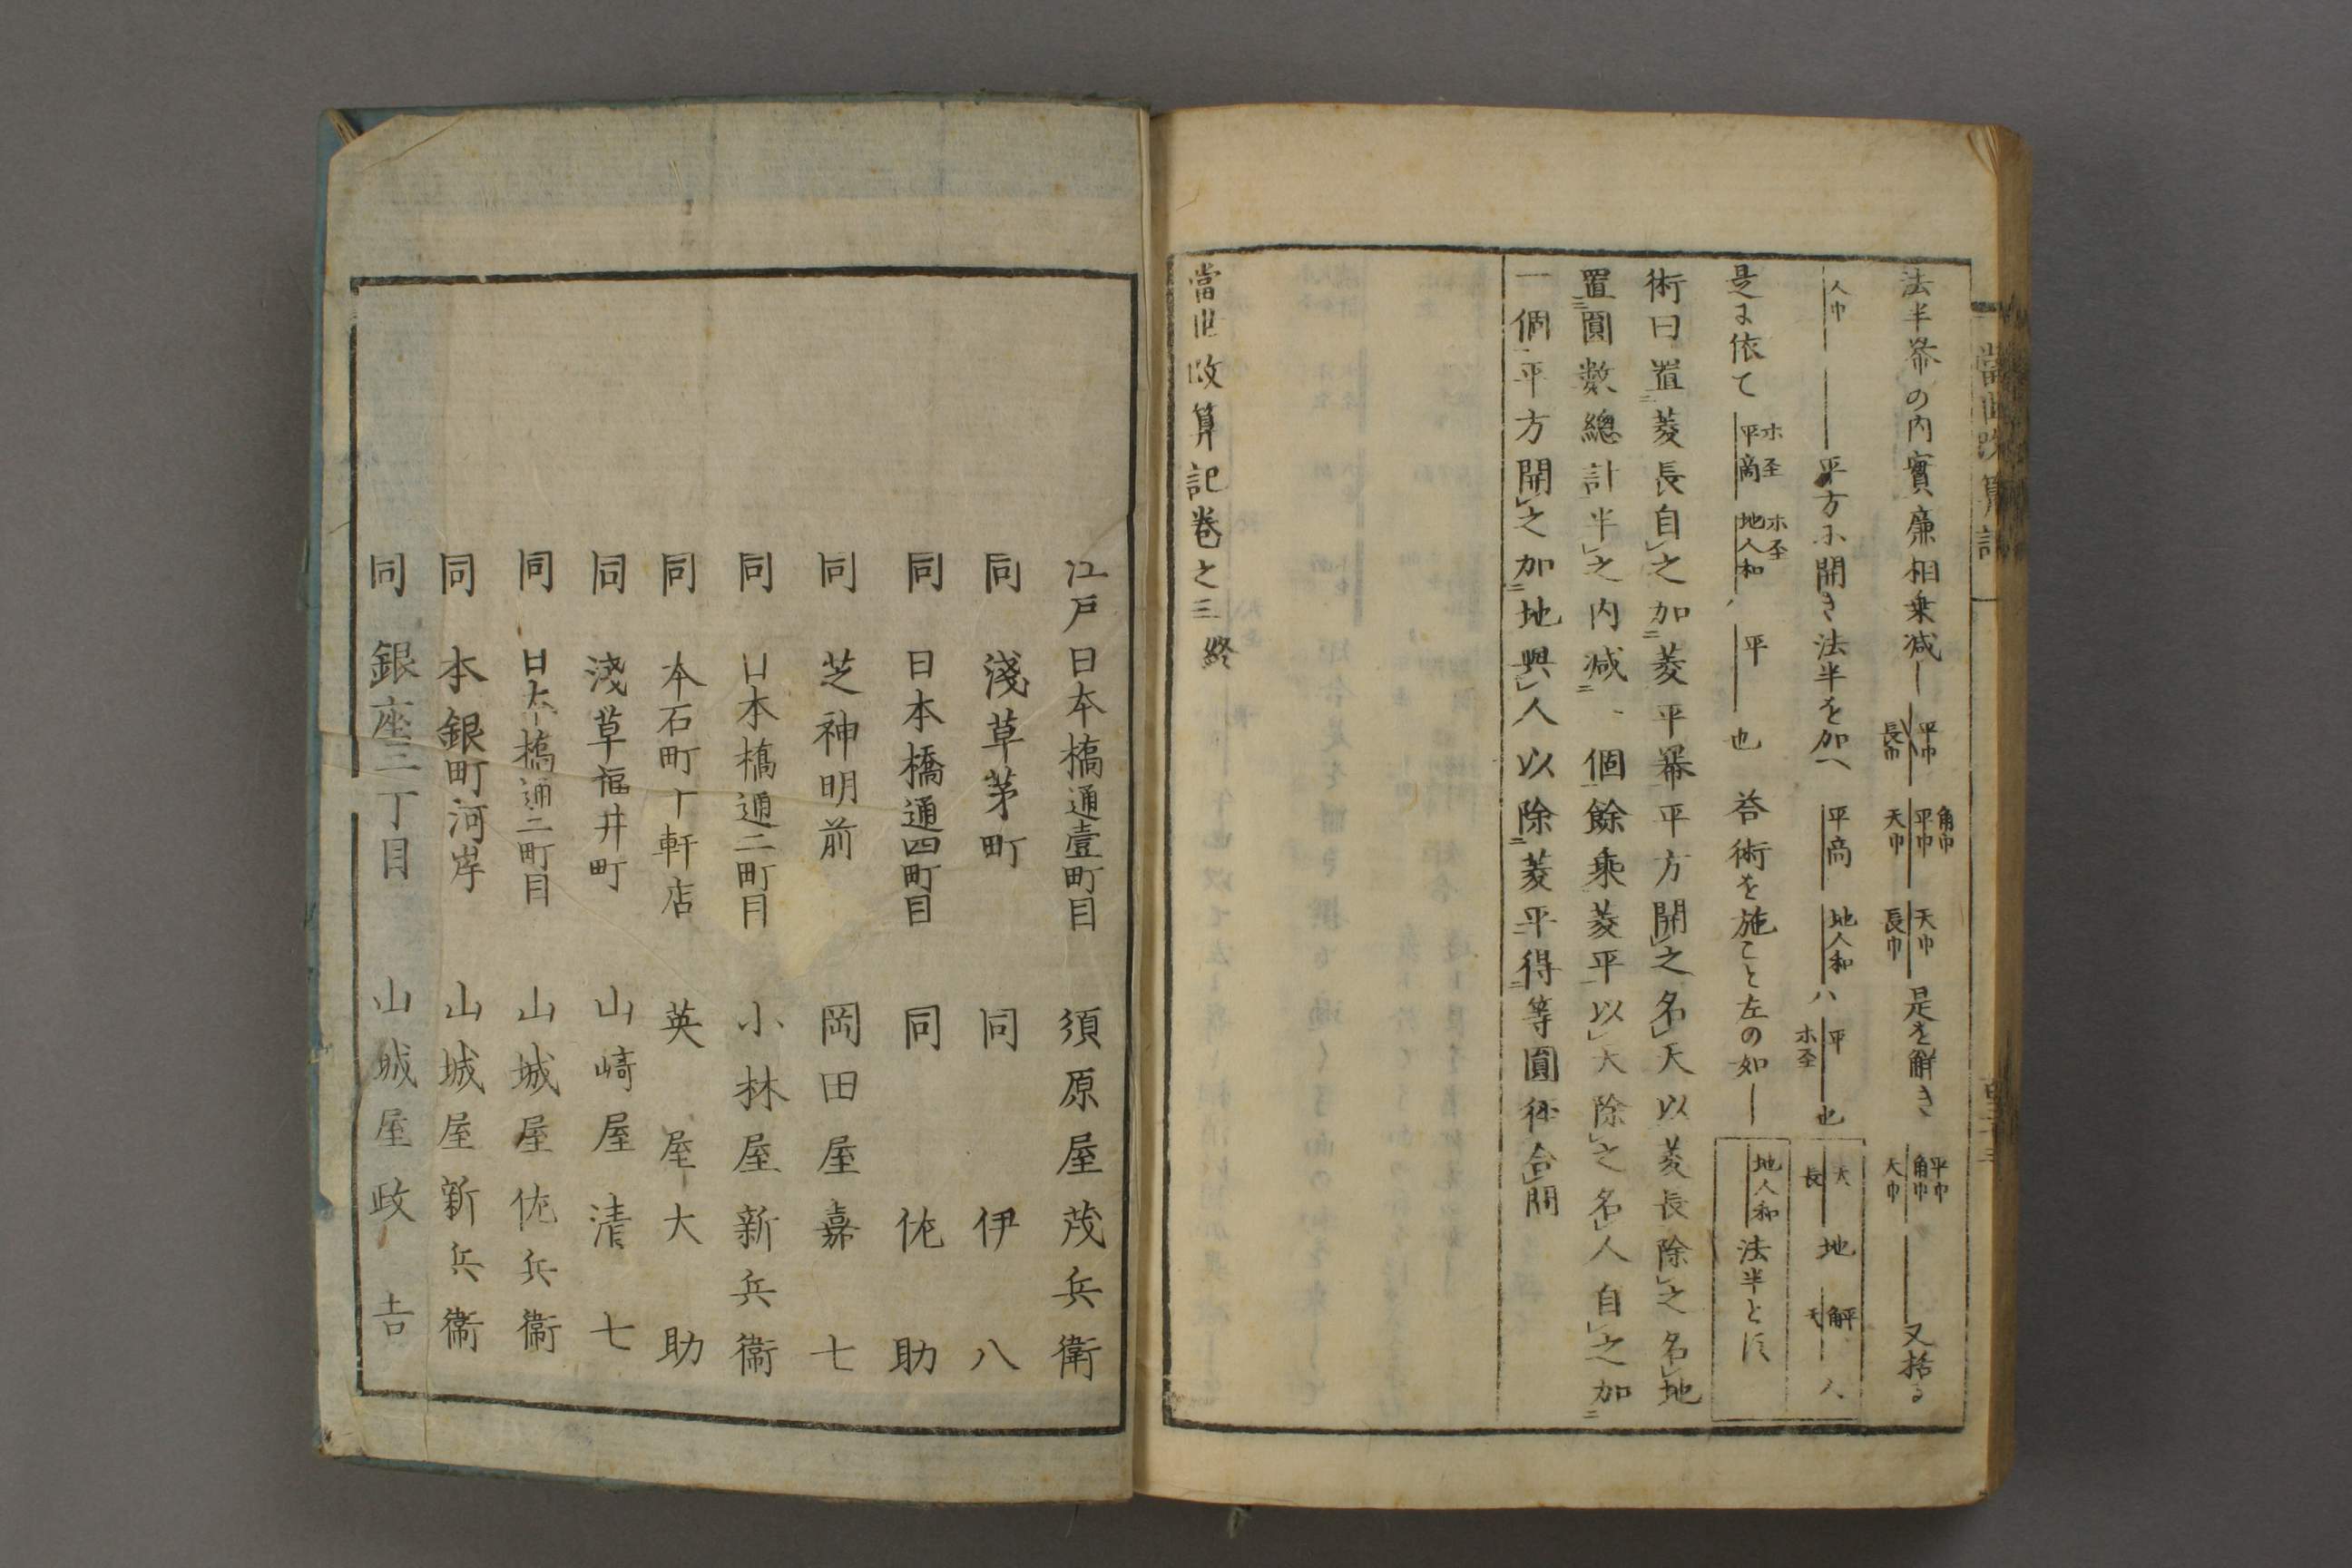 當世改算記
法半冪の内實廉相乗减し 平巾 長巾 角巾 平巾 天巾 天巾 長巾 是を解き 平巾 角巾 天巾 又括る
人巾 平方に開き法半を加へ 平商 地人和 ハ 平 也 天 長 地 人
是に依て 平商 地人和 平 也 答術を施こと左の如し 地人和 法半とす
術曰置菱長自之加菱平冪平方開之名天以菱長除之名地
置圓數總計半之内减一個餘乘菱平以天除之名人自之加
一個平方開之加地與人以除菱平得等圓径合問
當世改算記卷之三終
江戸日本橋通壹町目 須原屋茂兵衛
同 淺草茅町 同 伊八
同 日本橋通四町目 同 佐助
同 芝神明前 岡田屋嘉七
同 日本橋通二町目 小林屋新兵衛
同 本石町十軒店 英屋大助
同 淺草福井町 山崎屋清七
同 日本橋通二町目 山城屋佐兵衛
同 本銀町河岸 山城屋新兵衛
同 銀座二丁目 山城屋政吉